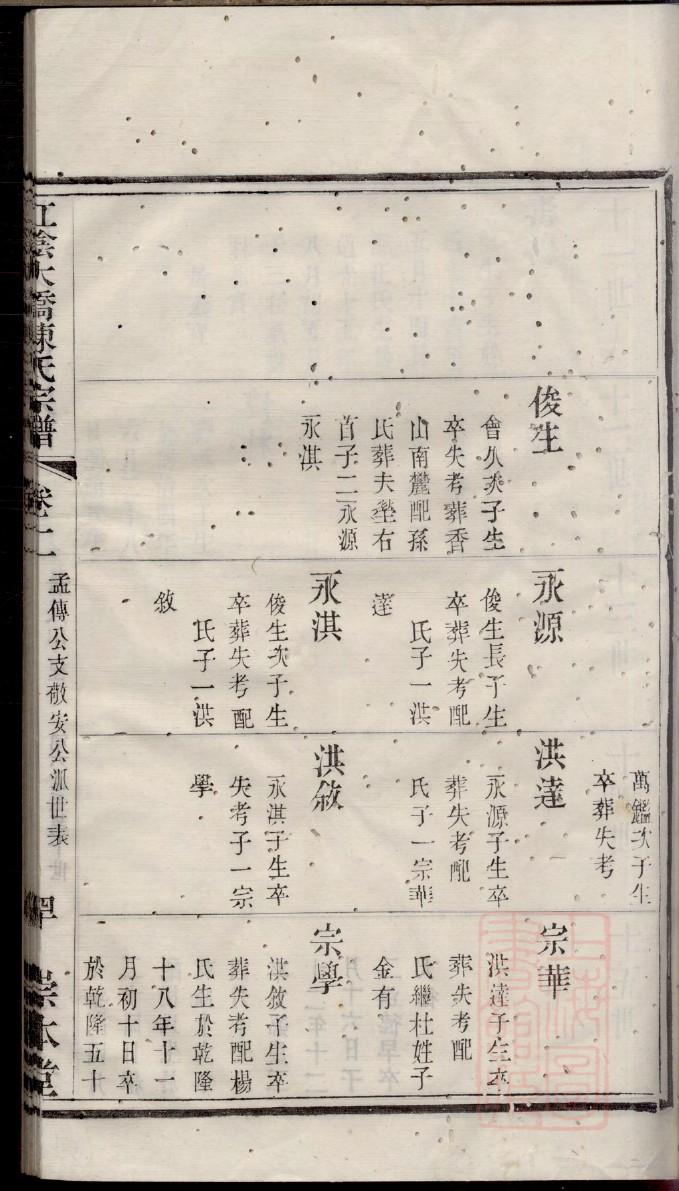 俊生
會久次子生
卒失考葬香
山南麓配孫
氏葬夫塋右
首子二永源
永淇
永源
俊生長子生
卒葬失考配
氏子一洪
達
永淇
俊生次子生
卒葬失考配
氏子一洪
敘
萬鑑次子生
卒葬失考
洪達
永源子生卒
葬失考配
氏子一宗華
洪敘
永淇子生卒
失考子一宗
學
宗華
洪達子生卒
葬失考配
氏繼杜姓子
金有
宗學
洪敘子生卒
葬失考配楊
氏生於乾隆
十八年十一
月初十日卒
於乾隆五十
江陰大橋陳氏宗譜
卷十二
孟傳公支敬安公派世表
宗本堂